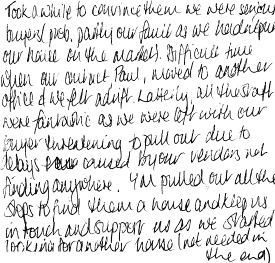 Took a while to convince them we were serious
buyers! prob. partly our fault as we hadn't put
our house on the market. Difficult time
when our contact Paul, moved to another
office & we felt adrift. Latterly, all the staff
were fantastic as we were left with our
buyer threatening to pull out due to
delays caused by our vendors not
finding anywhere. Y'all pulled out all the
stops to find them a house and keep us
in touch and support us as we started
looking for another house (not needed in
the end)